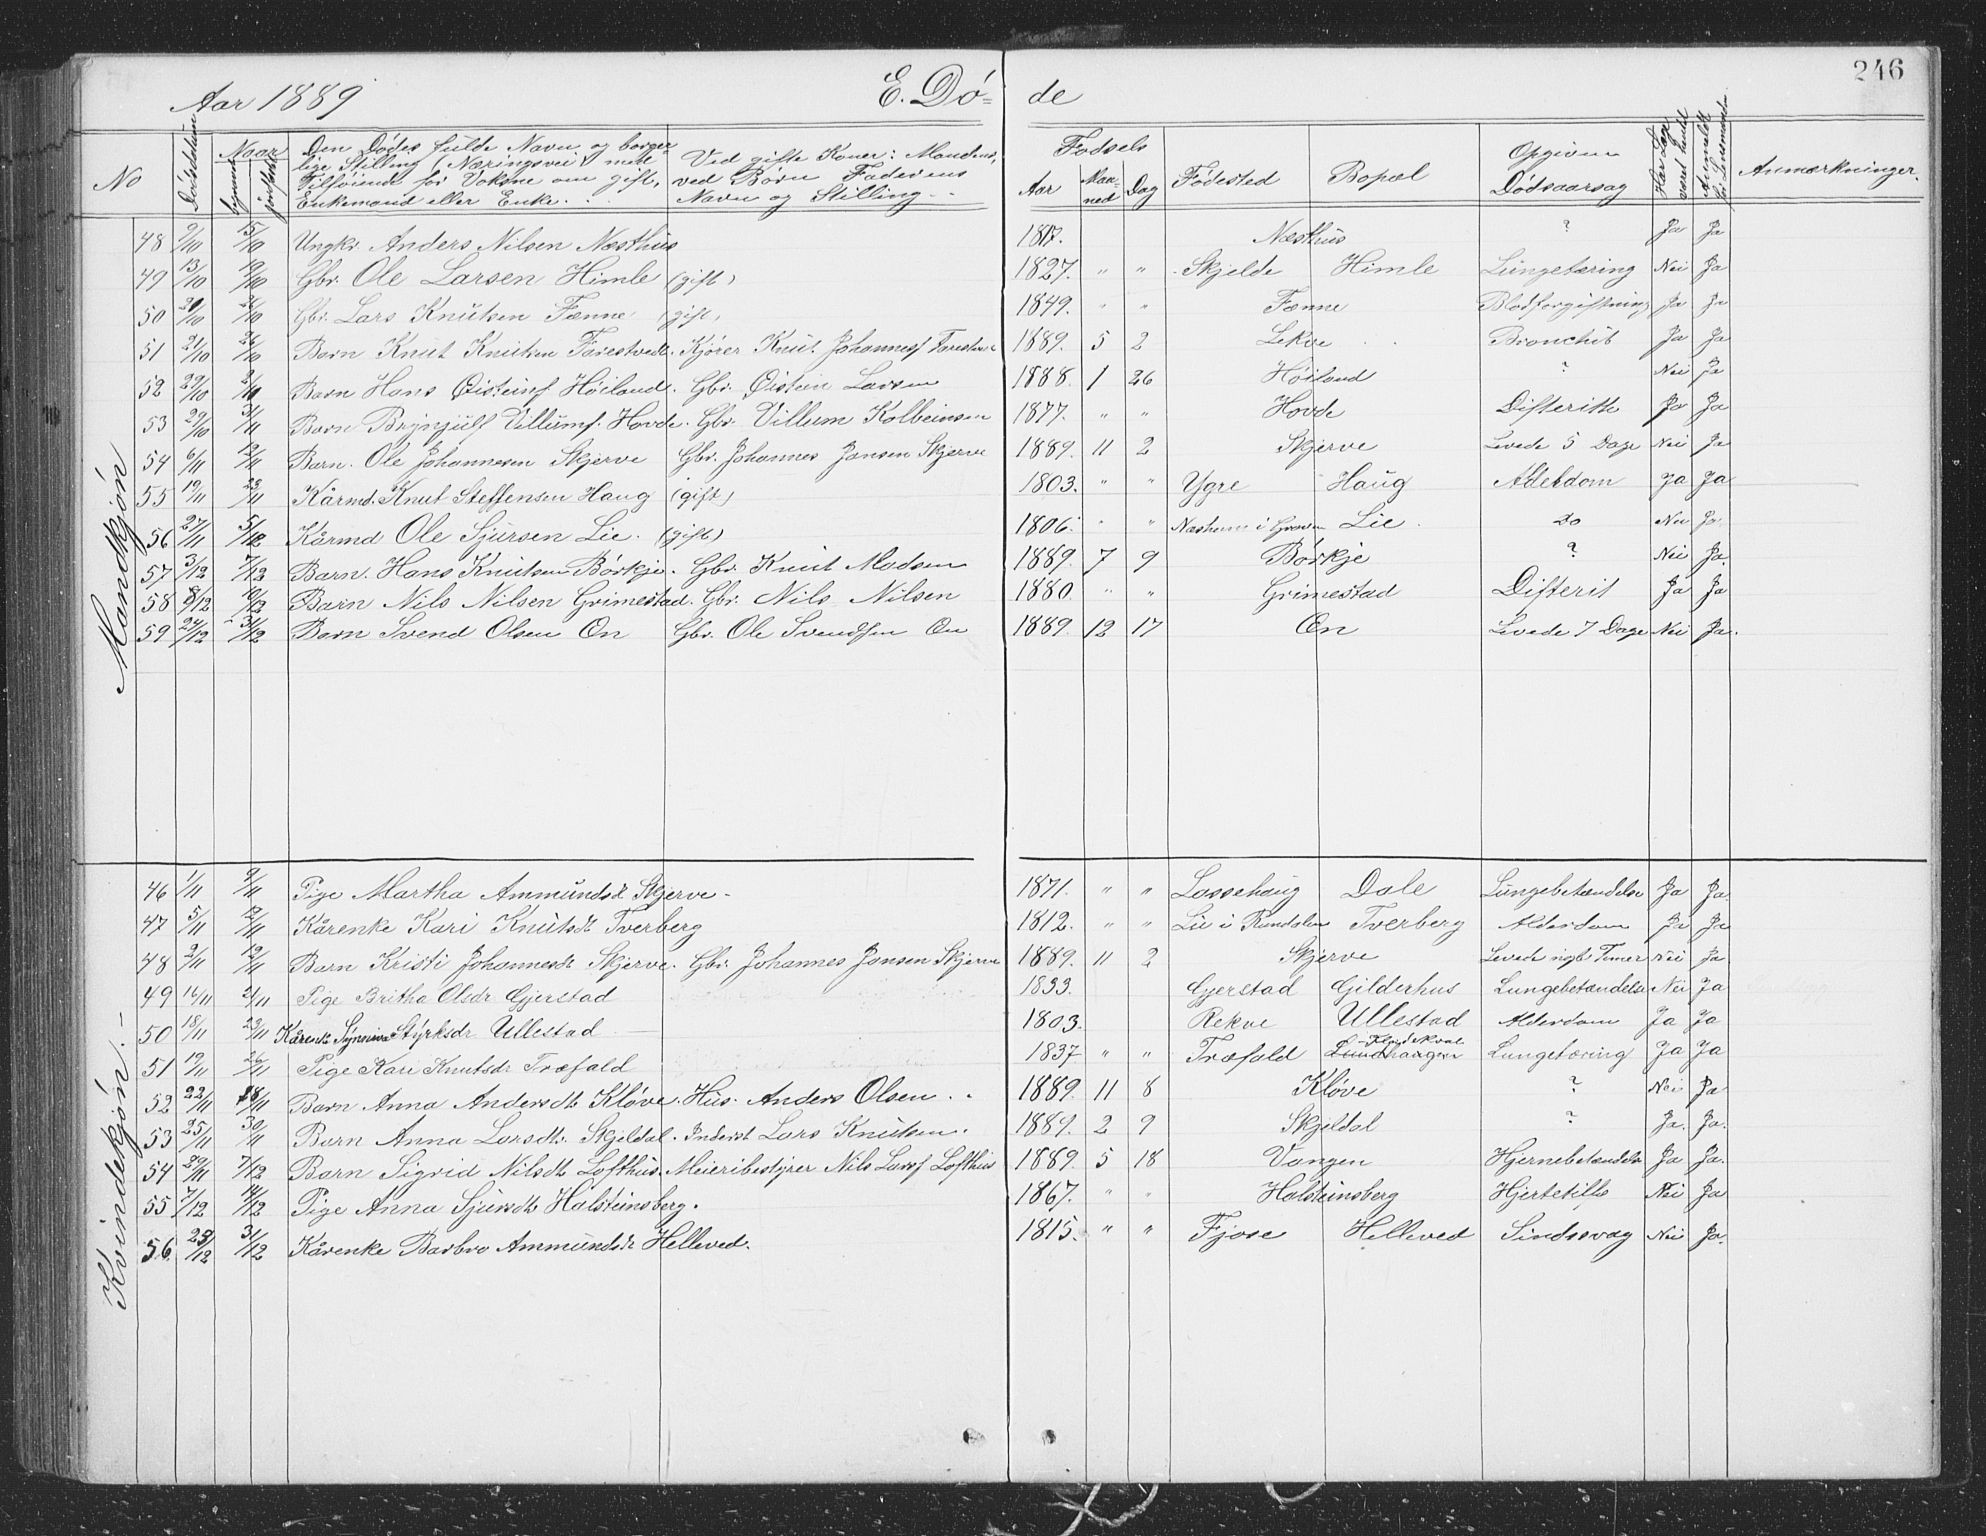 246
Aar 1889 E. Dö- de
No Dödsdatum Naar Den Dödes fulde Navn og borger- Ved gifte Koner: Mandens, Födsels Födested Bopæl Opgiven Har Læge Anmeldt Anmærkninger.
begravet jordfæstet lige Stilling (Næringsvei) med ved Börn Faderens Aar Maa- Dag Dödsaarsag været budt
Tilföiende for Voksne om gift, Navn og Stilling. ned
Enkemand eller Enke.
Mandkjön
48 9/10 15/10 Ungkr. Anders Nilsen Næsthus 1817. Næsthus ? Ja Ja
49 13/10 19/10 Gbr. Ole Larsen Himle (gift) 1827. " " Skjelde Himle Lungetæring Nei Ja
50 20/10 26/10 Gbr. Lars Knutsen Fænne (gift) 1849. " " Fænne Blodforgiftning Ja Ja
51 21/10 26/10 Barn Knut Knutsen Farestvedt. Kjörer Knut Johannesf 1889. 5 2 Lekve Bronchit Ja Ja
52 29/10 2/10 Barn Hans Öisteinf Höiland. Gbr. Öistein Larsen 1888. 1 26 Höiland ? Nei Ja
53 29/10 3/11 Barn Brynjulf Villumf. Hovde. Gbr. Villum Kolbeinsen 1877. " " Hovde Difterith Ja Ja
54 6/11 12/11 Barn. Ole Johannesen Skjerve Gbr. Johannes Jansen Skjerve 1889. 11 2 Skjerve Levede 5 Dage Nei Ja
55 19/11 23/11 Kårmd. Knut Steffensen Haug (gift) 1803. " " Ygre Haug Alderdom Ja Ja
56 27/11 5/12 Kårmd Ole Sjursen Lie. (gift) 1806. " " i Graven Lie. do Nei Ja.
57 3/12 7/12 Barn. Hans Knutsen Börkje. Gbr. Knut Madsen 1889. 7 9 Börkje ? Nei Ja.
58 8/12 10/12 Barn Nils Nilsen Grimestad. Gbr. Nils Nilsen 1880. " " Grimestad Difterit Ja Ja
59 24/12 31/12 Barn Svend Olsen Ön Gbr. Ole Svendsen Ön 1889. 12 17 Ön Levede 7 Dage Nei Ja.
Kvindekjön.
46 1/11 9/11 Pige Martha Ammundsdr Skjerve. 1871. " " Lassehaug Dale Lungebetændelse Ja Ja.
47 5/11 12/11 Kårenke Kari Knutsdt Tverberg 1812. " " Lie i Rundalen Tverberg Alderdom Ja Ja
48 2/11 12/11 Barn Kristi Johannesdt Skjerve. Gbr. Johannes Jansen Skjerve 1889. 11 2 Skjerve Levede Timer Nei Ja
49 16/11 21/11 Pige Britha Olsdr Gjerstad 1833. Gjerstad Gilderhus Lungebetændelse Nei Ja
50 18/11 23/11 Kårenke Synneva Styrksdr Ullestad 1803. Rekve Ullestad Alderdom Ja Ja
51 19/11 26/11 Pige Kari Knutsdr Træfald 1837 " " Træfald Lundhaugen Lungetæring Ja Ja
52 22/11 28/11 Barn Anna Andersdt Klöve. Hus. Anders Olsen. 1889. 11 8 Klöve ? Nei Ja
53 25/11 30/11 Barn Anna Larsdtr. Skjeldal. Inderst Lars Knutsen. 1889. 2 9 Skjeldal ? Ja. Ja.
54 29/11 7/12 Barn Sigrid Nilsdt Lofthus. Meieribestyrer Nils Larsf Lofthus 1889. 5 18 Vangen Hjernebetændelse Ja Ja.
55 7/12 14/12 Pige Anna Sjursdt Halsteinsberg. 1867. " " Halsteinsberg Hjertetilfs Nei Ja
56. 23/12 31/12 Kårenke Barbro Ammundsdr Helleved. 1815. " " Fjose Helleved Sindssvag Nei Ja.